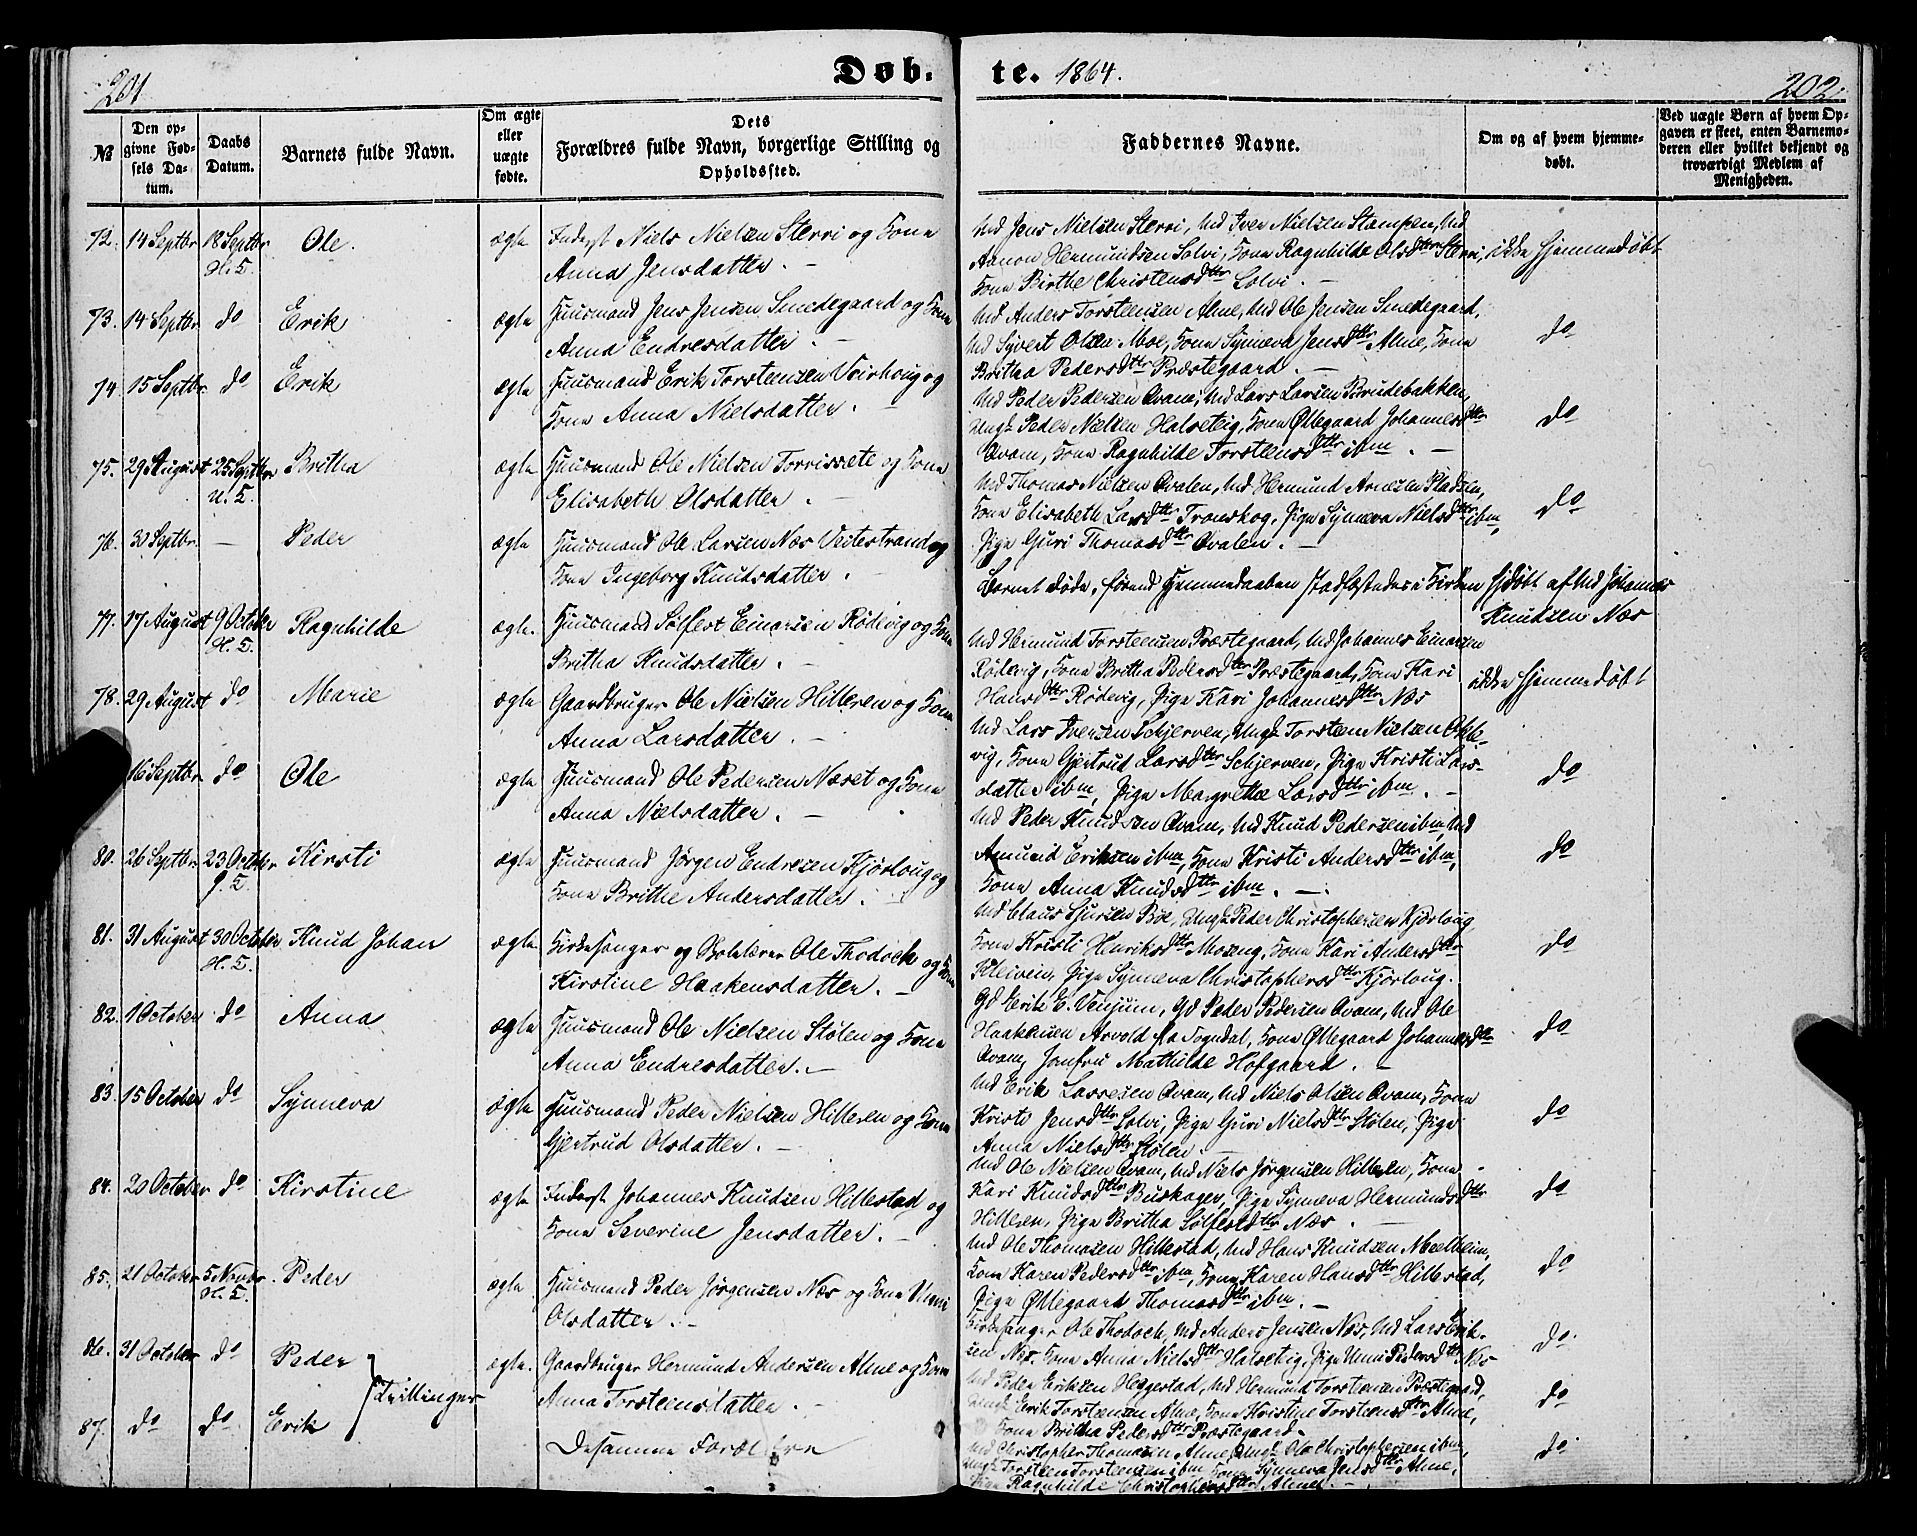 201
Døb-
te. 1864.
202.
№
Den opgivne Fødsels Datum.
Daabs Datum.
Barnets fulde Navn.
Om ægte eller uægte fødte.
Dets Forældres fulde Navn, borgerlige Stilling og Opholdssted.
Faddernes Navne.
Om og af hvem hjemmedøbt.
Ved uægte Børn af hvem Opgaven er skeet, enten Barnemoderen eller hvilket bekjendt og troværdigt Medlem af Menigheden.
72. 14 Septbr 18 Septbr H. K. Ole. ægte Inderst Niels Nielsen Sterri og Kone
Anna Jensdatter. —
Ud Jens Nielsen Sterri, Ud Iver Nielsen Stampen, Ud
Aanon Hermundsen Solvi, Kone Ragnhilde Olsdttr Sterri,
Kone Birthe Christensdttr Solvi. —
ikke hjemmedøbt
73. 14 Septbr do Erik ægte Huusmand Jens Jensen Smedegaard og Kone
Anna Endresdatter. —
Ud Anders Torsteensen Alme, Ud Ole Jensen Smedegaard,
Ud Syvert Olsen Moe, Kone Synneva Jensdttr Alme, Kone
Britha Pedersdttr Præstegaard. —
do
74 15 Septbr. do Erik ægte Huusmand Erik Torsteensen Veirhoug og
Kone Anna Nielsdatter. —
Ud Peder Pedersen Qvam, Ud Lars Larsen Brudebakken,
Ungk. Peder Nielsen Halveteig, Kone Øllegaard Johannesdttr
Qvam, Kone Ragnhilde Torsteensdttr ibm. —
do
75. 29 August 25 Septbr U. K. Britha ægte Huusmand Ole Nielsen Torrissete og Kone
Elisabeth Olsdatter. —
Ud Thomas Nielsen Qvalen, Ud Hermund Arnesen Pladsen,
Kone Elisabeth Larsdttr Tronskog, Pige Synneva Nielsdttr ibm,
Pige Guri Thomasdttr Qvalen. —
do
76. 30 Septbr. — Peder ægte Huusmand Ole Larsen Næs Veitestrand og
Kone Ingeborg Knudsdatter.
Barnet døde, førend Hjemmedaaben stadfæstedes i Kirken
hjdøbt af Ud Johannes
Knudsen Næs
77. 17 August 9 October H. K. Ragnhilde ægte. Huusmand Solfest Einarsen Rødevig og Kone
Britha Knudsdatter. —
Ud Hermund Torsteensen Præstegaard, Ud Johannes Einarsen
Rødevig, Kone Britha Pedersdttr Præstegaard, Kone Kari
Hansdttr Rødevig, Pige Kari Johannesdttr Næs
ikke hjemmedøbt
78. 29 August do Marie ægte Gaardbruger Ole Nielsen Hilleren og Kone
Anna Larsdatter. —
Ud Lars Iversen Schjerven, Ungk. Torsteen Nielsen Okle-
vig, Kone Gjertrud Larsdttr Schjerven, Pige Kristi Lars-
datter ibm, Pige Margrethe Larsdttr ibm. —
do
16 Septbr. do Ole ægte Huusmand Ole Pedersen Næset og Kone
Anna Nielsdatter. —
Ud Peder Knudsen Qvam, Ud Knud Pedersen ibm, Ud
Amund Eriksen ibm, Kone Kristi Andersdttr ibm,
Kone Anna Knudsdttr ibm. —
do
80. 26 Septbr. 23 October J. K. Kirsti ægte Huusmand Jørgen Endresen Kjørloug og
Kone Brithe Andersdatter. —
Ud Claus Sjursen Bøe, Ungk. Peder Christophersen Kjørloug,
Kone Kristi Henriksdttr Moseng, Kone Kari Andersdttr
Kleiven, Pige Synneva Christophersdttr Kjørloug.
do
81. 31 August 30 October H. K. Knud Johan ægte Kirkesanger og Skolelærer Ole Thodock og Kone
Kirstine Haakensdatter. —
Gd Erik E. Venjum, Gd Peder Pedersen Qvam, Ud Ole
Haakensen Arvold fra Sogndal, Kone Øllegaard Johannesdttr
Qvam, Jomfru Mathilde Hofgaard. —
do
82. 1 October do Anna ægte Huusmand Ole Nielsen Stølen og Kone
Anna Endresdatter. —
Ud Erik Lassesen Qvam, Ud Niels Olsen Qvam, Kone
Kristi Jensdttr Solvi, Pige Guri Nielsdttr Stølen, Pige
Anna Nielsdttr Stølen.
do
83. 15 October do Synneva ægte Huusmand Peder Nielsen Hilleren og Kone
Gjertrud Olsdatter. —
Ud Ole Nielsen Qvam, Ud Niels Jørgensen Hilleren, Kone
Kari Knudsdttr Buskager, Pige Synneva Hermundsdttr
Hilleren, Pige Britha Solfestdttr Næs. —
do
84. 20 October do Kirstine ægte Inderst Johannes Knudsen Hillestad og
Kone Severine Jensdatter. —
Ud Ole Thomasen Hillestad, Ud Hans Knudsen Melheim,
Kone Karen Pedersdttr ibm, Kone Karen Hansdttr Hillestad,
Pige Øllegaard Thomasdttr ibm. —
do
85. 21 October 5 Novbr. H. K. Peder ægte Huusmand Peder Jørgensen Næs og Kone Unni
Olsdatter. —
Kirkesanger Ole Thodock, Ud Anders Jensen Næs, Ud Lars Erik-
sen Næs, Kone Anna Nielsdttr Halveteig, Pige Unni Pedersdttr Næs
do.
86. 31 October do Peder } Tvillinger ægte. Gaardbruger Hermund Andersen Alme og Kone
Anna Torsteinsdatter. —
Ud Peder Eriksen Heggestad, Ud Hermund Torsteensen Præstegaard,
Ungk. Erik Torsteensen Alme, Kone Kristine Torsteensdttr Alme,
Kone Britha Pedersdttr Præstegaard.
do
87. do do Erik
Desamme Forældre
Ud Christopher Thomasen Alme, Ungk. Ole Christophersen ibm,
Ungk. Torsteen Torsteensen ibm, Kone Synneva Jensdttr Alme,
Pige Ragnhilde Christophersdttr Alme. —
do